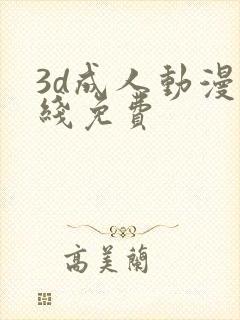 3d成人動漫
綫免費
高美蘭